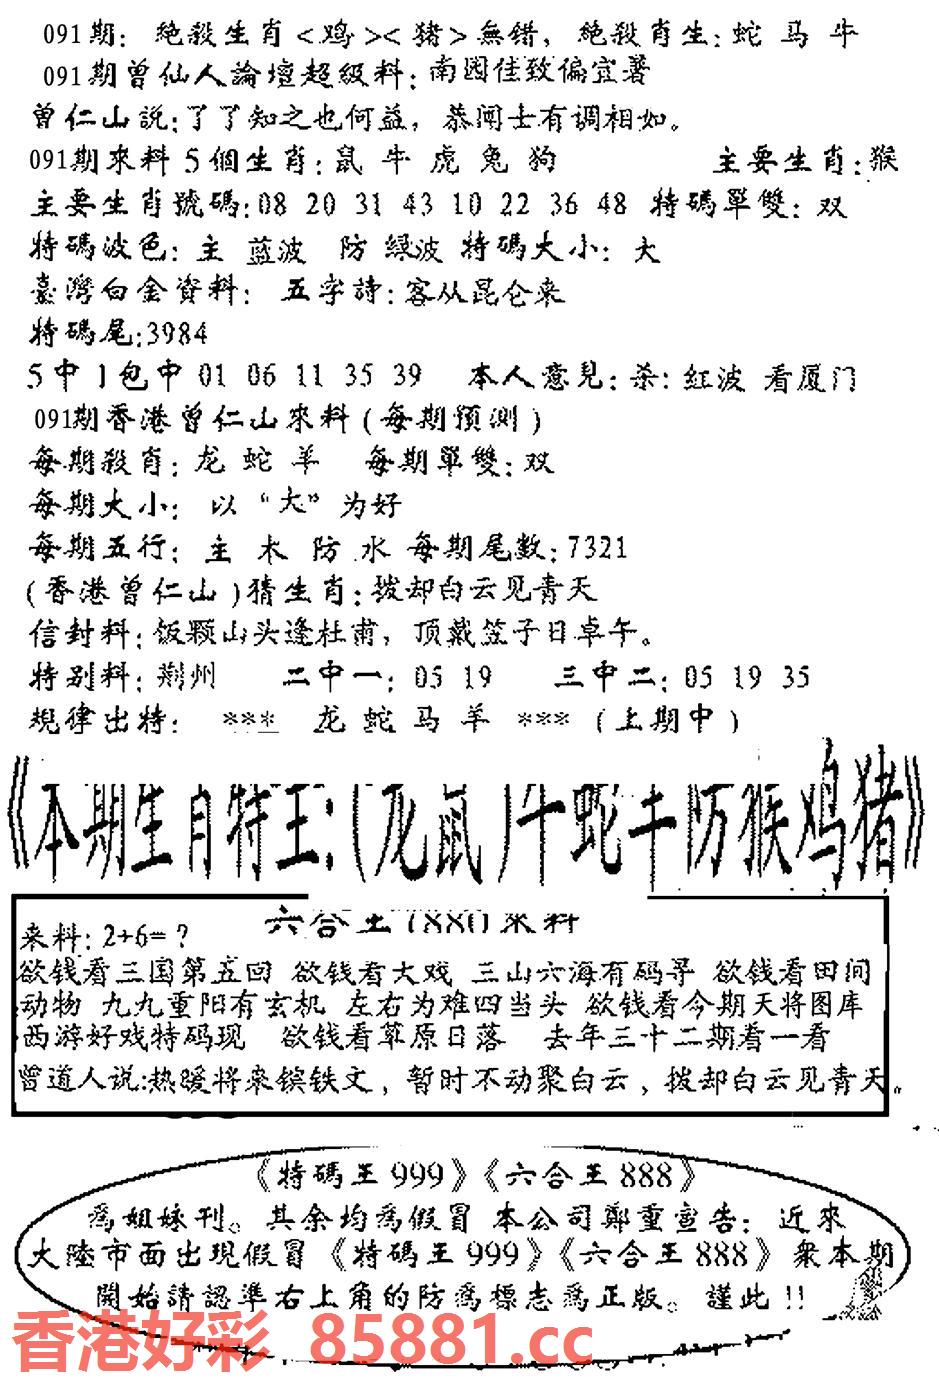 091期: 絶殺生肖<鸡><猪>無错, 絶殺肖生: 蛇 马 牛
091期曾仙人論壇超級料: 南园佳致偏宜暑
曾仁山説:了了知之也何益, 恭闻士有调相如。
091期來料 5個生肖:鼠 牛 虎 兔 狗 主要生肖:猴
主要生肖號碼:08 20 31 43 10 22 36 48 特碼單雙: 双
特碼波色: 主 蓝波 防 绿波 特碼大小: 大
臺灣白金資料: 五字詩:客从昆仑来
特碼尾:3984
5中1包中 01 06 11 35 39 本人意見:杀: 红波 看厦门
091期香港曾仁山來料(每期預測)
每期殺肖: 龙 蛇 羊 每期單雙: 双
每期大小: 以 “大”为好
每期五行: 主 木 防 水 每期尾数:7321
(香港曾仁山)猜生肖:拨却白云见青天
信封料:饭颗山头逢杜甫, 顶戴笠子日卓午。
特别料: 荆州 二中一: 05 19 三中二: 05 19 35
規律出特: *** 龙 蛇 马 羊 *** (上期中)
《本期生肖特王:(龙鼠)牛蛇羊防猴鸡猪》
六合王7880來料
来料: 2+6=?
欲钱看三国第五回 欲钱看大戏 三山六海有码寻 欲钱看田间
动物 九九重阳有玄机 左右为难四当头 欲钱看今期天将图库
西游好戏特码现 欲钱看草原日落 去年三十二期看一看
曾道人说:热暖将来镔铁文, 暂时不动聚白云, 拨却白云见青天。
《特碼王999》《六合王888》
爲姐妹刊。其余均爲假冒 本公司鄭重宣告: 近來
大陸市面出現假冒《特碼王999》《六合王888》衆本期
開始請認準右上角的防爲標志爲正版。 謹此!!
香港好彩 85881.cc